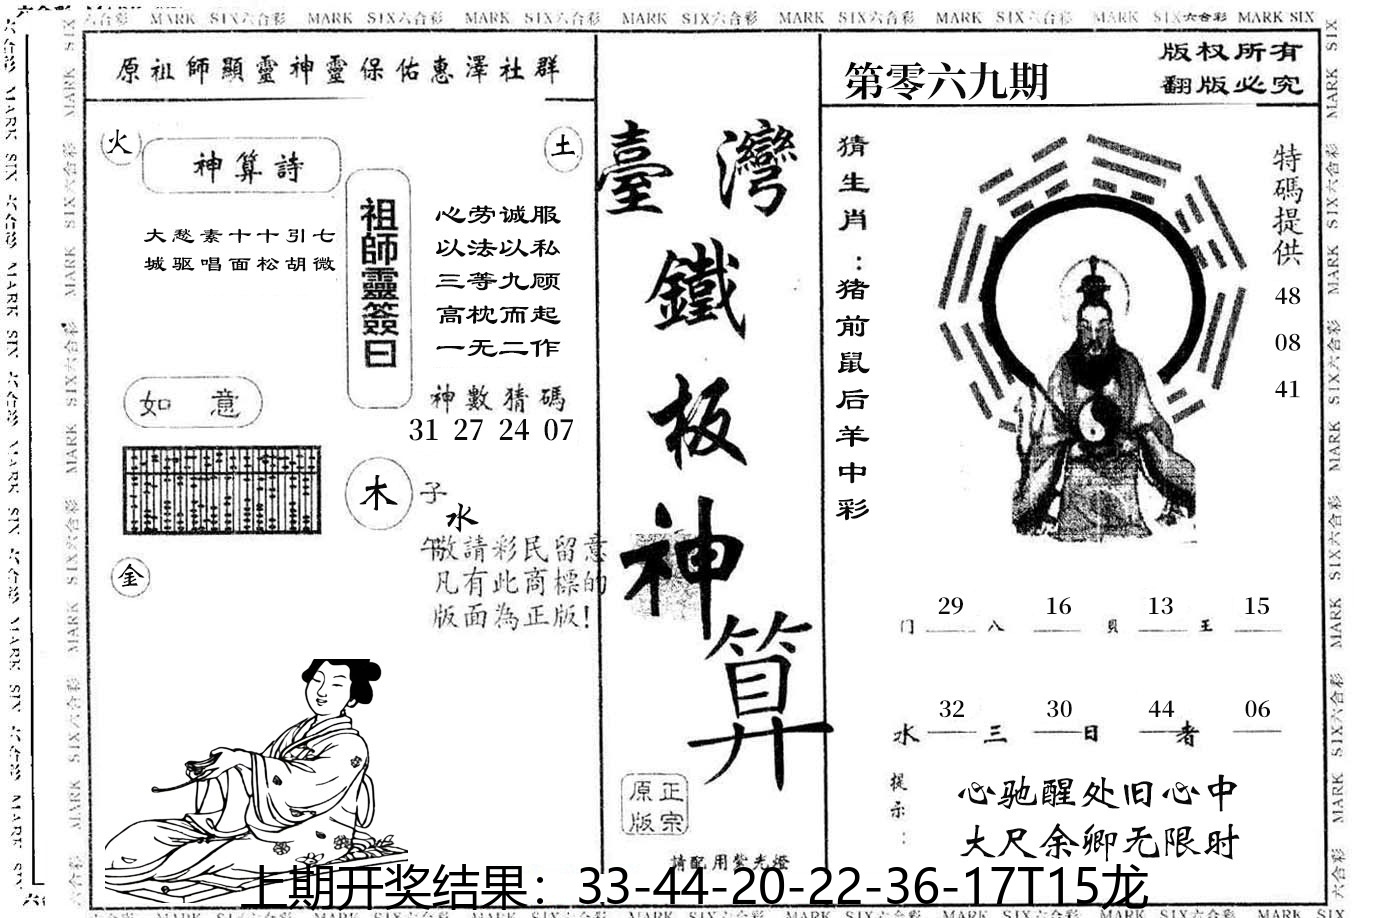 MARK SIX六合彩 MARK SIX六合彩 MARK SIX六合彩 MARK SIX六合彩 MARK SIX六合彩 MARK SIX六合彩 MARK SIX六合彩 MARK SIX
原祖師顯靈神靈保佑惠澤社群
火
土
神算詩
大愁素十十引七
城驱唱面松胡微
祖師靈簽曰
心劳诚服
以法以私
三等九顾
高枕而起
一无二作
神數猜碼
31 27 24 07
如意
木
子
水
午
金
敬請彩民留意
凡有此商標的
版面為正版!
臺灣
鐵
板
神
算
原正
版宗
請配用紫光燈
第零六九期
版权所有
翻版必究
猜生肖:猪前鼠后羊中彩
特碼提供
48
08
41
门 29 八 16 貝 13 王 15
水 32 三 30 日 44 者 06
提示:
心驰醒处旧心中
大尺余卿无限时
上期开奖结果:33-44-20-22-36-17T15龙